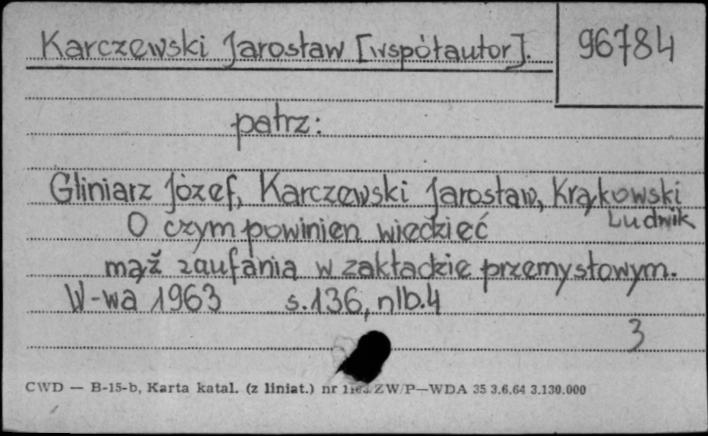 Karczewski Jarosław [współautor].
96784
patrz:
Gliniarz Józef, Karczewski Jarosław, Krąkowski
Ludwik
O czym powinien wiedzieć
mąż zaufania w zakładzie przemysłowym.
W-wa 1963 s.136, nlb.4
3
CWD — B-15-b, Karta katal. (z liniat.) nr ZW/P—WDA 35 3.6.64 3.130.000